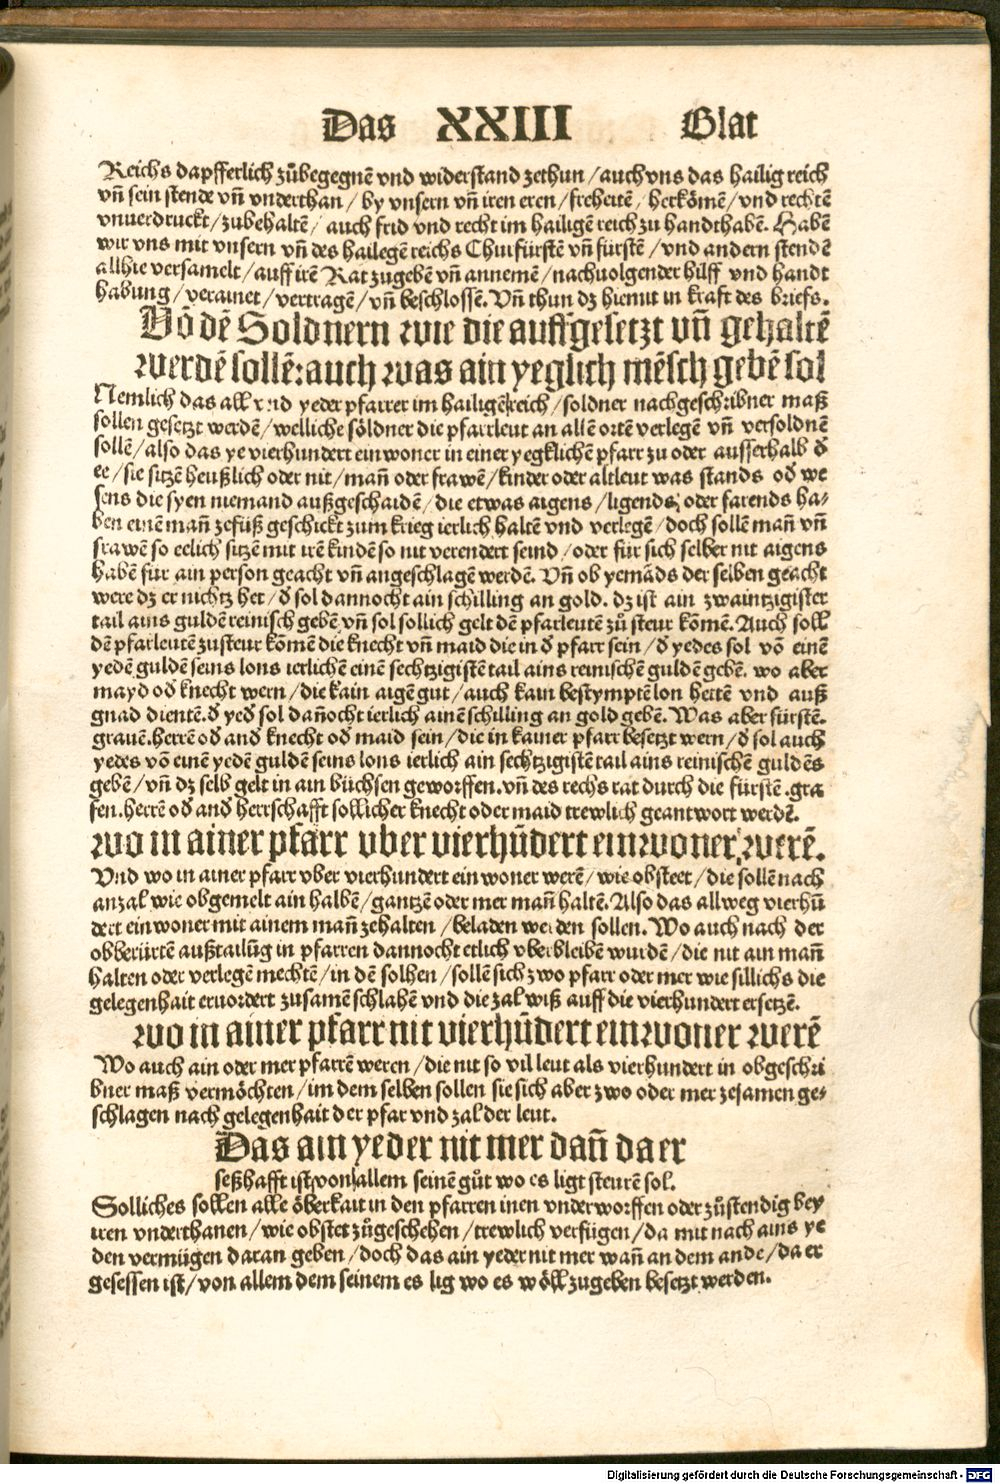 Das XXIII Blat
Reichs dapfferlich zůbegegnē vnd widerstand zethun / auch vns das hailig reich
vn̄ sein stende vn̄ vnderthan / by vnsern vn̄ iren eren / freheitē / herkōmē / vnd rechtē
vnuerdruckt / zubehaltē / auch frid vnd recht im hailigē reich zu handthabē. Habē
wir vns mit vnsern vn̄ des hailegē reichs Churfürstē vn̄ fürstē / vnd andern stendē
allhie versamelt / auff irē Rat zugebē vn̄ annemē / nachuolgender hilff vnd handt
habung / verainet / vertragē / vn̄ beschlossē. Vn̄ thun dz hiemit in kraft des briefs.
Vō dē Soldnern wie die auffgesetzt vn̄ gehaltē
werdē sollē: auch was ain yeglich mēsch gebē sol
Nemlich das all vnd yeder pfarrer im hailigē reich / soldner nachgeschribner maß
sollen gesetzt werdē / welliche söldner die pfarrleut an allē ortē verlegē vn̄ versoldnē
sollē / also das ye vierhundert einwoner in einer yegklichē pfarr zu oder ausserhalb d̄
ee / sie sitzē heußlich oder nit / man̄ oder frawē / kinder oder altleut was stands od̄ we
sens die syen niemand außgeschaidē / die etwas aigens / ligends, oder farends ha-
ben einē man̄ zefüß geschickt zum krieg ierlich haltē vnd verlegē / doch sollē man̄ vn̄
frawē so eelich sitzē mit irē kindē so nit verendert seind / oder für sich selber nit aigens
habē für ain person geacht vn̄ angeschlagē werdē. Vn̄ ob yemāds der selben geacht
were dz er nichtz het / d̄ sol dannocht ain schilling an gold. dz ist ain zwaintzigister
tail ains guldē reinisch gebē vn̄ sol sollich gelt dē pfarleutē zů steur kōmē. Auch soll
dē pfarleutē zusteur kōmē die knecht vn̄ maid die in d̄ pfarr sein / d̄ yedes sol vō einē
yedē guldē seins lons ierlichē einē sechtzigistē tail ains reinischē guldē gebē. wo aber
mayd od̄ knecht wern / die kain aigē gut / auch kain bestymptē lon hettē vnd auß
gnad dientē. d̄ yed̄ sol dan̄ocht ierlich ainē schilling an gold gebē. Was aber fürstē.
grauē. herrē od̄ and̄ knecht od̄ maid sein / die in kainer pfarr besetzt wern / d̄ sol auch
yedes vō einē yedē guldē seins lons ierlich ain sechtzigistē tail ains reinischē guldēs
gebē / vn̄ dz selb gelt in ain büchsen geworffen. vn̄ des rechs rat durch die fürstē. gra
fen. herrē od̄ and̄ herrschafft sollicher knecht oder maid trewlich geantwort werdē.
wo in ainer pfarr vber vierhūdert einwoner werē.
Vnd wo in ainer pfarr vber vierhundert einwoner werē / wie obsteet / die sollē nach
anzal wie obgemelt ain halbē / gantzē oder mer man̄ haltē. Also das allweg vierhū
dert einwoner mit ainem man̄ zehalten / beladen werden sollen. Wo auch nach der
obberürtē außtailūg in pfarren dannocht etlich vberbleibē wurdē / die nit ain man̄
halten oder verlegē mechtē / in dē solhen / sollē sich zwo pfarr oder mer wie sillichs die
gelegenhait eruordert zusamē schlahē vnd die zal wiß auff die vierhundert ersetzē.
wo in ainer pfarr nit vierhūdert einwoner werē
Wo auch ain oder mer pfarrē weren / die nit so vil leut als vierhundert in obgeschri
bner maß vermöchten / im dem selben sollen sie sich aber zwo oder mer zesamen ge-
schlagen nach gelegenhait der pfar vnd zal der leut.
Das ain yeder nit mer dan̄ da er
seßhafft ist von allem seinē gůt wo es ligt steurē sol.
Solliches sollen alle öberkait in den pfarren inen vnderworffen oder zůstendig bey
iren vnderthanen / wie obstet zůgeschehen / trewlich verfügen / da mit nach ains ye
den vermügen daran geben / doch das ain yeder nit mer wan̄ an dem ande / da er
gesessen ist / von allem dem seinem es lig wo es wöll zugeben besetzt werden.
Digitalisierung gefördert durch die Deutsche Forschungsgemeinschaft - DFG